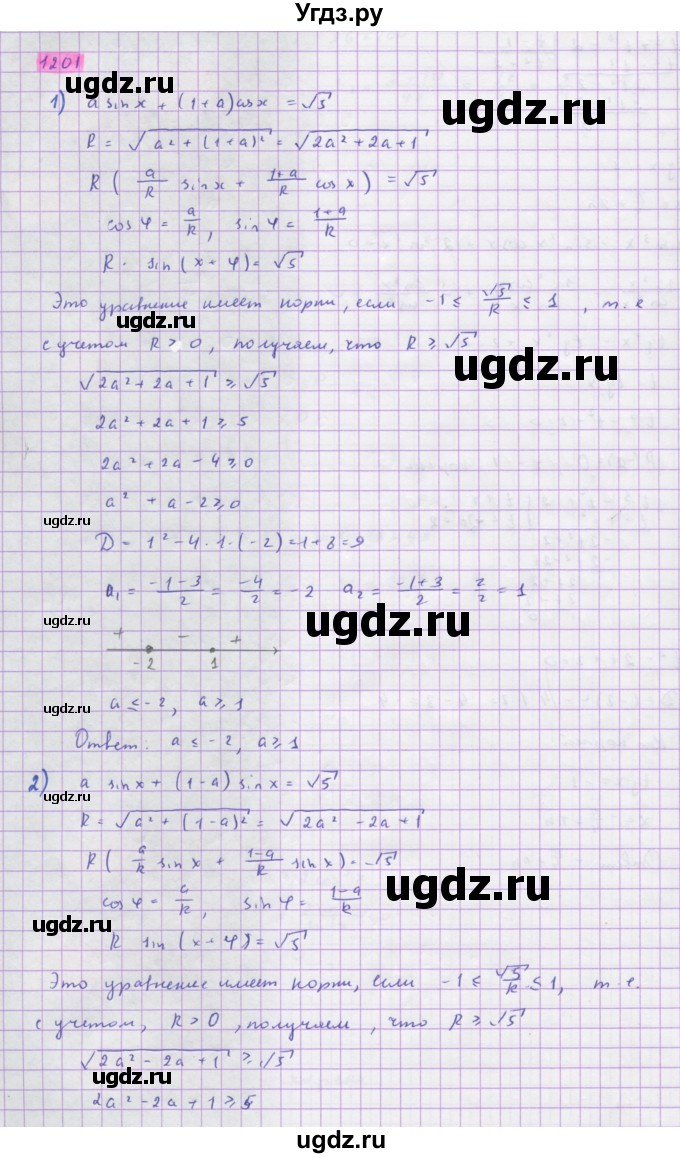 Угдз.ру
1201
ugdz.ru
1) a sin x + (1+a) cos x = √5
R = √a² + (1+a)² = √2a² + 2a + 1
ugdz.ru
R ( a/R sin x + 1+a/R cos x ) = √5
cos φ = a/R, sin φ = 1+a/R
R · sin (x + φ) = √5
ugdz.ru
Это уравнение имеет корни, если -1 ≤ √5/R ≤ 1, т.е
ugdz.ru
с учетом R > 0, получаем, что R ≥ √5
ugdz.ru
√2a² + 2a + 1 ≥ √5
2a² + 2a + 1 ≥ 5
2a² + 2a - 4 ≥ 0
a² + a - 2 ≥ 0
ugdz.ru
D = 1² - 4 · 1 · (-2) = 1 + 8 = 9
a₁ = -1-3/2 = -4/2 = -2 a₂ = -1+3/2 = 2/2 = 1
ugdz.ru
ugdz.ru
+ - +
-2 1
a ≤ -2, a ≥ 1
ugdz.ru
Ответ: a ≤ -2, a ≥ 1
2) a sin x + (1-a) sin x = √5
ugdz.ru
R = √a² + (1-a)² = √2a² - 2a + 1
R ( a/R sin x + 1-a/R sin x ) = √5
ugdz.ru
cos φ = a/R, sin φ = 1-a/R
ugdz.ru
R sin (x + φ) = √5
Это уравнение имеет корни, если -1 ≤ √5/R ≤ 1, т.е.
с учетом, R > 0, получаем, что R ≥ √5
√2a² - 2a + 1 ≥ √5
ugdz.ru
2a² - 2a + 1 ≥ 5
ugdz.ru